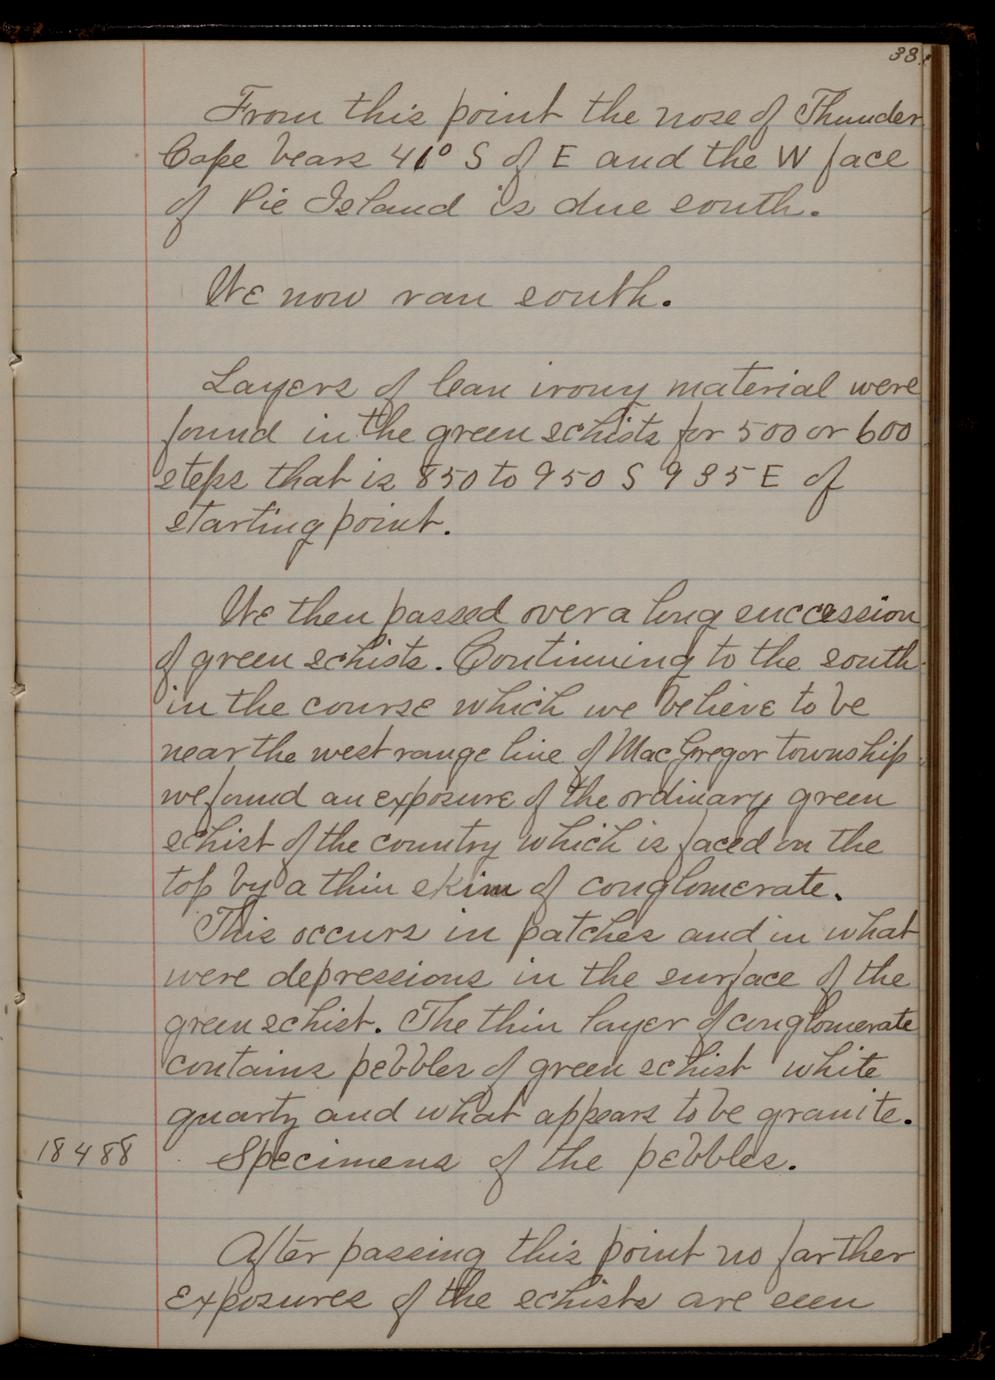 38
From this point the nose of Thunder
Cape bears 41° S of E and the W face
of Pie Island is due south.
We now ran south.
Layers of lean irony material were
found in the green schists for 500 or 600
steps that is 850 to 950 S 935 E of
starting point.
We then passed over a long succession
of green schists. Continuing to the south
in the course which we believe to be
near the west range line of MacGregor township
we found an exposure of the ordinary green
schist of the country which is faced on the
top by a thin skim of conglomerate.
This occurs in patches and in what
were depressions in the surface of the
green schist. The thin layer of conglomerate
contains pebbles of green schist white
quartz and what appears to be granite.
18488 Specimens of the pebbles.
After passing this point no farther
exposures of the schists are seen